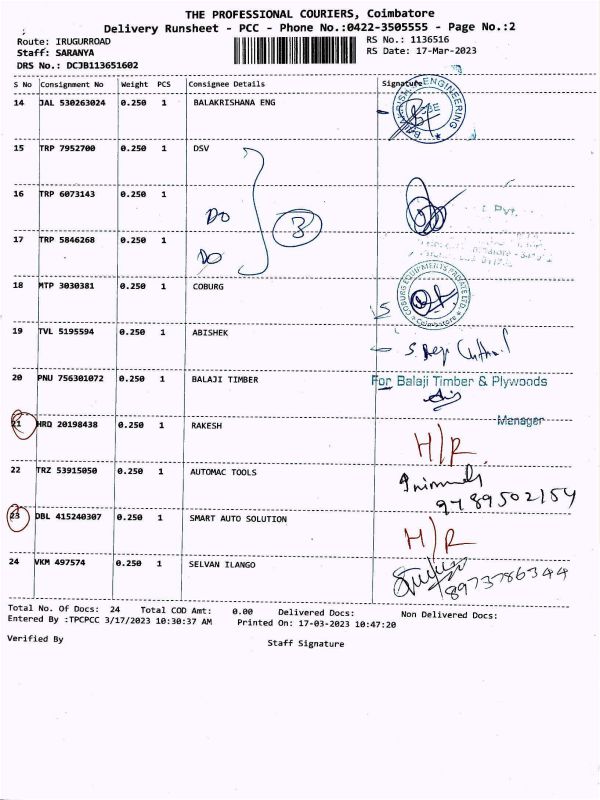 THE PROFESSIONAL COURIERS, Coimbatore
Delivery Runsheet - PCC - Phone No.:0422-3505555 - Page No.:2
Route: IRUGURROAD RS No.: 1136516
Staff: SARANYA RS Date: 17-Mar-2023
DRS No.: DCJB113651602
S No Consignment No Weight PCS Consignee Details Signature
14 JAL 530263024 0.250 1 BALAKRISHANA ENG
ENGINEERING
15 TRP 7952700 0.250 1 DSV
16 TRP 6073143 0.250 1 DO 3
Pvt.
17 TRP 5846268 0.250 1 DO
18 MTP 3030381 0.250 1 COBURG
COBURG EQUIPMENTS PRIVATE LTD
Coimbatore
19 TVL 5195594 0.250 1 ABISHEK
20 PNU 756301072 0.250 1 BALAJI TIMBER For Balaji Timber & Plywoods
Manager
21 HRQ 20198438 0.250 1 RAKESH H/R
22 TRZ 53915050 0.250 1 AUTOMAC TOOLS
9789502154
23 DBL 415240307 0.250 1 SMART AUTO SOLUTION H/R
24 VKM 497574 0.250 1 SELVAN ILANGO
8973786344
Total No. Of Docs: 24 Total COD Amt: 0.00 Delivered Docs: Non Delivered Docs:
Entered By :TPCPCC 3/17/2023 10:30:37 AM Printed On: 17-03-2023 10:47:20
Verified By Staff Signature